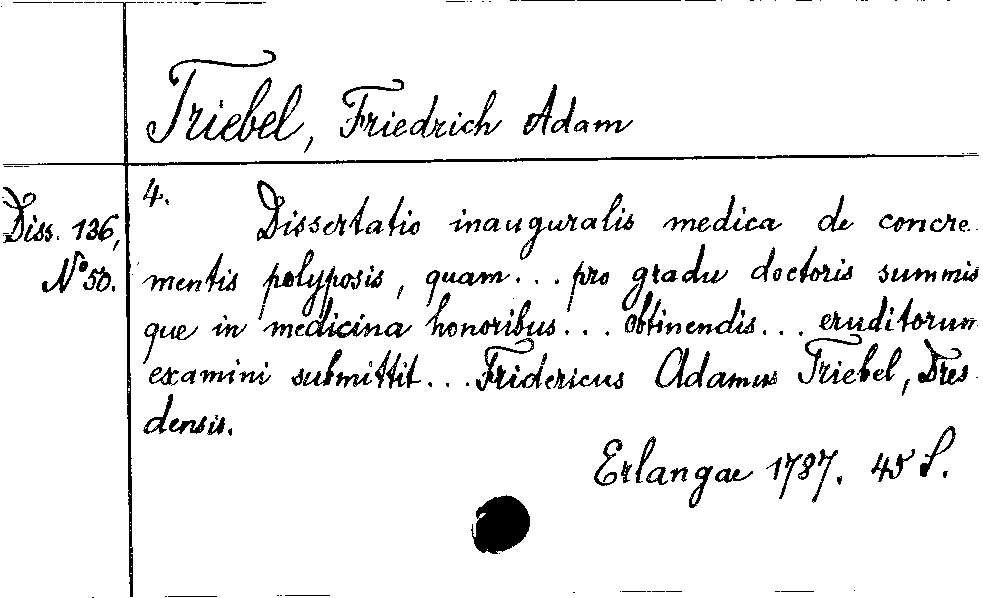 Triebel, Friedrich Adam
Diss. 136,
N° 50.
4.
Dissertatio inauguralis medica de concre
mentis polyposis, quam... pro gradu doctoris summis
que in medicina honoribus... obtinendis... eruditorum
examini submittit... Fridericus Adamus Triebel, Dres
densis.
Erlangae 1787. 45 S.